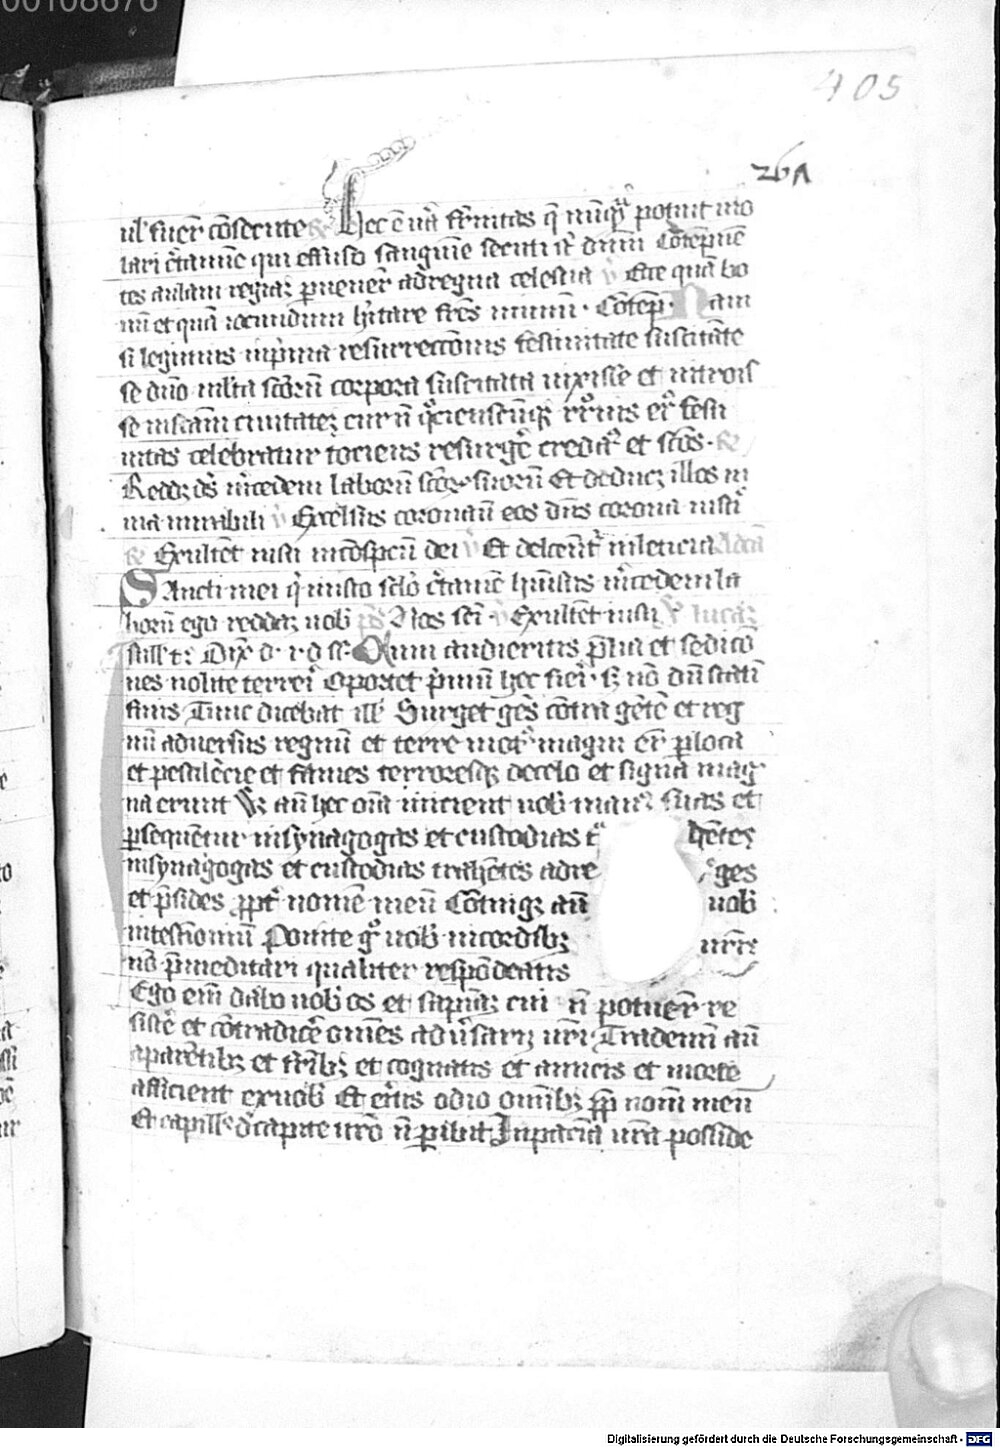 00108676
405
261
ul' fuer̄ cōsecute Hec ē ũa fr̄nitas q̄ nūq̃ potuit vio
lari c̄tamīe qui effuso sanguīe secuti sr̄ dnm̄ Cōtēpnē
tes aulam regiaȝ puener̄ ad regna celestia v̄ Ecce quā bo
nū et quā iocundum hītare frēs in unū · Cōtēp̄ Nam
si legimus in p̄ma resurrecc̄onis festiuitate suscitāte
se dn̄o mlta scōrū corpora suscitata vixisse et introis
se in sc̄am ciuitateȝ
uitas celebratur tociens resurgē credit̄ et scōs · R̄
Redde ds̄ m̄cedem laborū scōr suorū Et deducȝ illos in
uia mirabili v̄ Excelsus coronauit eos dn̄s corona iusti
R̄ Exultēt iusti in cōspctū dei v̄ Et delcent̄ in leticia
Sancti mei q̄ in isto sclō c̄tamē hūistis m̄cedem la
borū ego reddaȝ uob̄ Nos sci v̄ Exultēt iusti lucaȝ
In ill' t: Dix̄ d. s. Qum audieritis p̄lia et sedicō
nes nolite terreri Oportet p̄mū hec fieri · sȝ nō dū stati
finis Tunc dicebat ill' Surget gēs cōtra gētē et reg
nū aduersus regnū et terre mot' magni er̄t p loca
et pestilēcie et fames terroresqȝ de celo et signa mag
na erunt Sȝ an̄ hec oīa inicient uob̄ man' suas et
psequentur in synagogas et custodias t̄ hētes
in synagogas et custodias trahētes ad re ges
et p̄sides ppt' nomē meū Cōtingȝ aū uob̄
in testīoniū Ponite g° uob̄ in cordibȝ uris
nō p̄meditari qualiter respōdeatis
Ego eīm dabo uob̄ os et sapīaȝ cui n̄ potuer̄ re
sistē et cōtradicē omēs adūsarij uri Trademī aū
a parētibȝ et frībȝ et cognatis et amicis et morte
afficient ex uob̄ Et eritis odio omībȝ pp̄ nom̄ meū
Et capill' d' capite uro n̄ pibit In pacīa ura posside
Digitalisierung gefördert durch die Deutsche Forschungsgemeinschaft - DFG